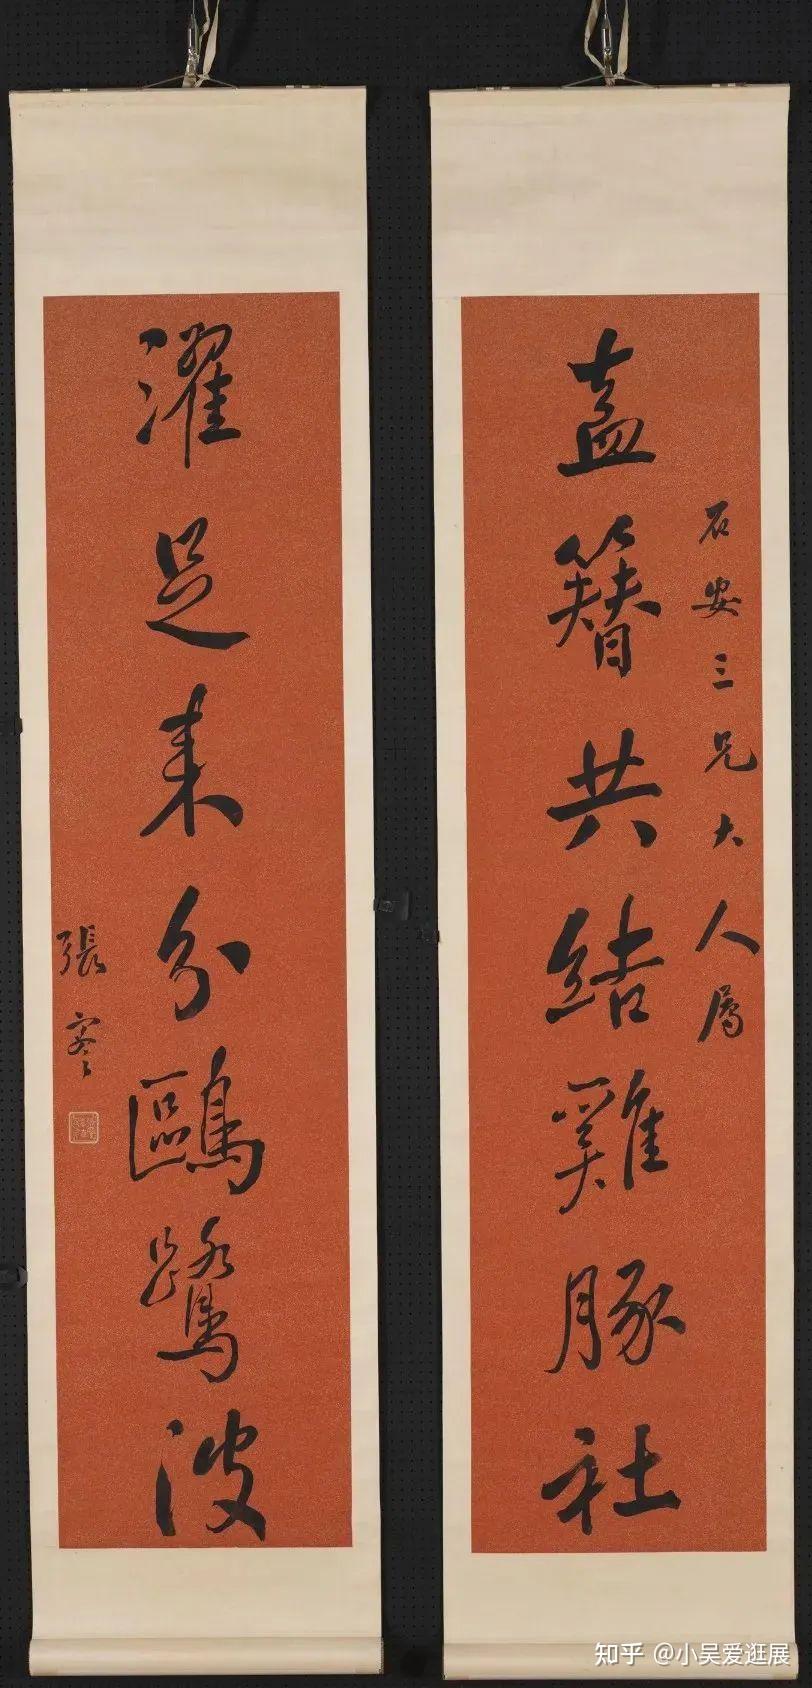 石安三兄大人属
盍簪共結雞豚社
濯足来分鷗鷺波
張謇
知乎 @小吴爱逛展